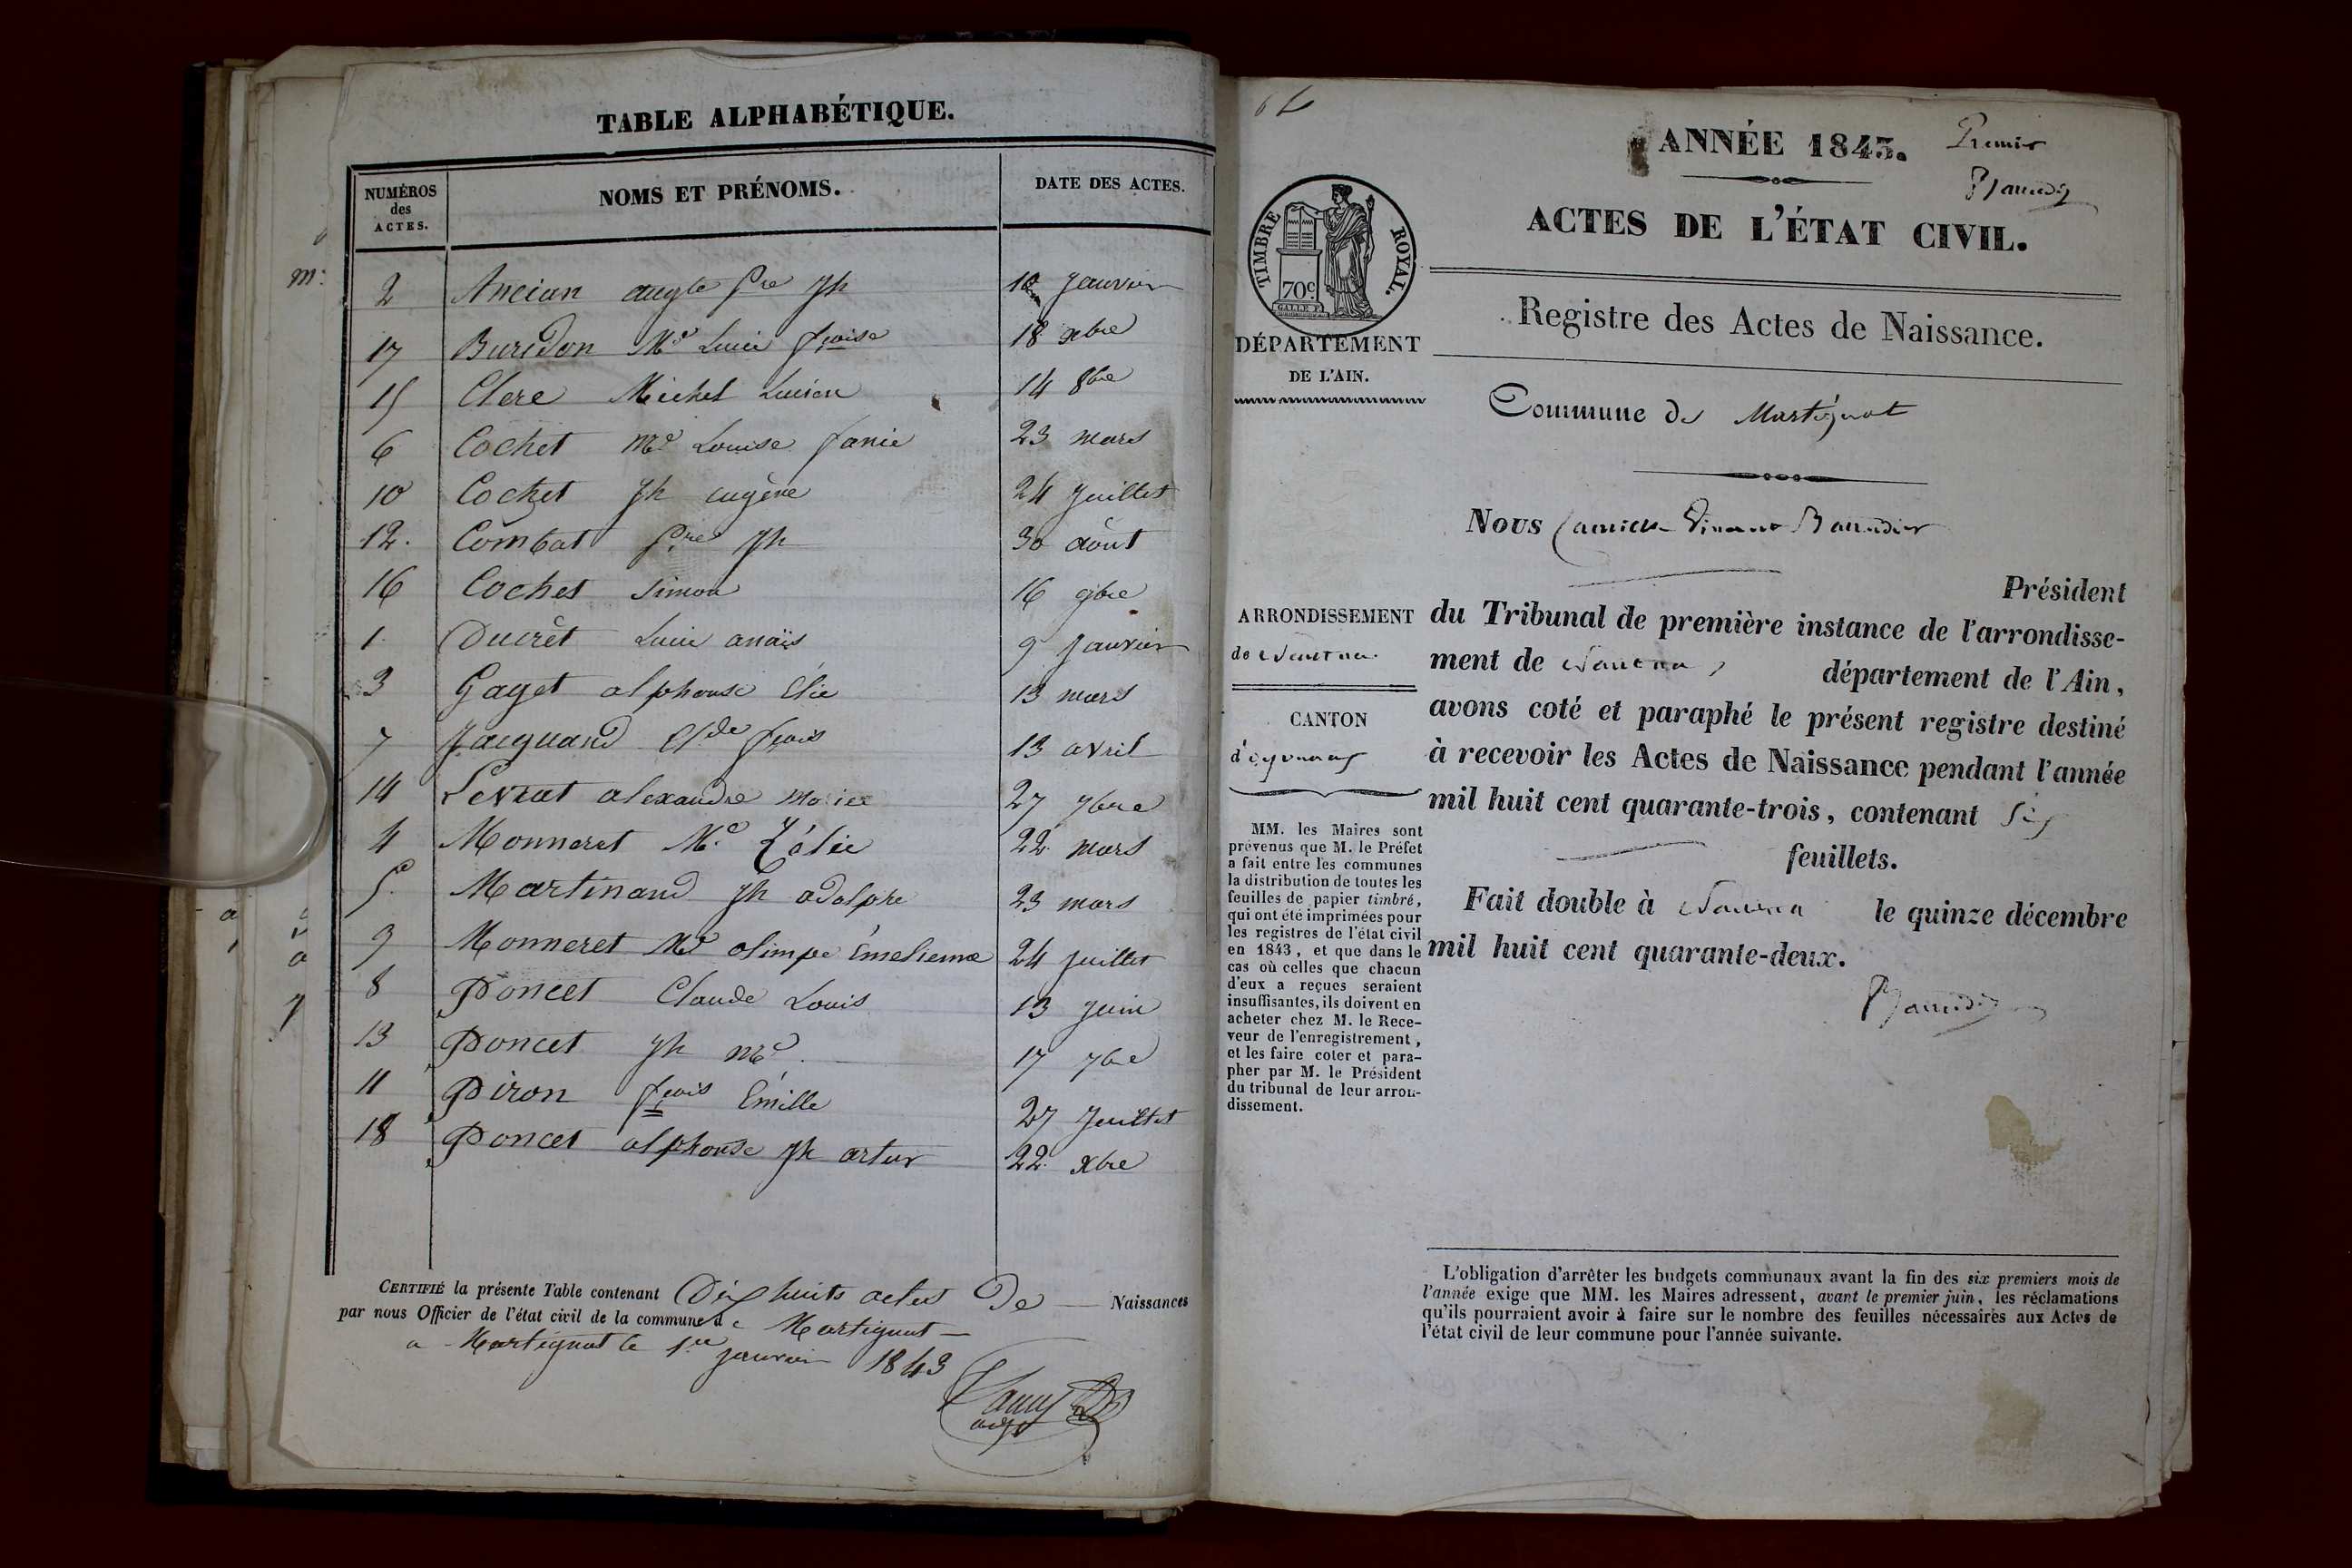 TABLE ALPHABÉTIQUE.
NUMÉROS des ACTES. NOMS ET PRÉNOMS. DATE DES ACTES.
2 Ancian augte pre jh 10 janvier
17 Buridon Me Lucie fçoise 18 xbre
15 Clere Michel Lucien 14 8bre
6 Cochet me Louise fanie 23 mars
10 Cochet jh eugène 24 juillet
12. Combat pre jh 30 août
16 Cochet Simon 16 9bre
1 Ducrèt Lucie anaïs 9 janvier
3 Gaget alphonse Elie 13 mars
7 Jacquand Clde fçois 13 avril
14 Levrat alexandre marie 27 7bre
4 Monneret Me Zélie 22 mars
5 Martinand jh adolphe 23 mars
9 Monneret Me olimpe Émelienne 24 juillet
8 Poncet Claude Louis 13 juin
13 Poncet jh me 17 7bre
11 Piron fçois Émille 27 juillet
18 Poncet alphonse jh artur 22 xbre
CERTIFIÉ la présente Table contenant Dix huits actes De Naissances
par nous Officier de l'état civil de la commune de Martignat
a Martignat le 1er janvier 1843
ANNÉE 1843. Premier
ACTES DE L'ÉTAT CIVIL.
TIMBRE ROYAL.
70c
DÉPARTEMENT
DE L'AIN.
Registre des Actes de Naissance.
Commune de Martignat
Nous
Président
ARRONDISSEMENT
de Nantua
CANTON
d'oyonnax
du Tribunal de première instance de l'arrondisse-
ment de Nantua, département de l'Ain,
avons coté et paraphé le présent registre destiné
à recevoir les Actes de Naissance pendant l'année
mil huit cent quarante-trois, contenant six
feuillets.
Fait double à Nantua le quinze décembre
mil huit cent quarante-deux.
MM. les Maires sont
prévenus que M. le Préfet
a fait entre les communes
la distribution de toutes les
feuilles de papier timbré,
qui ont été imprimées pour
les registres de l'état civil
en 1843, et que dans le
cas où celles que chacun
d'eux a reçues seraient
insuffisantes, ils doivent en
acheter chez M. le Rece-
veur de l'enregistrement,
et les faire coter et para-
pher par M. le Président
du tribunal de leur arron-
dissement.
L'obligation d'arrêter les budgets communaux avant la fin des six premiers mois de
l'année exige que MM. les Maires adressent, avant le premier juin, les réclamations
qu'ils pourraient avoir à faire sur le nombre des feuilles nécessaires aux Actes de
l'état civil de leur commune pour l'année suivante.